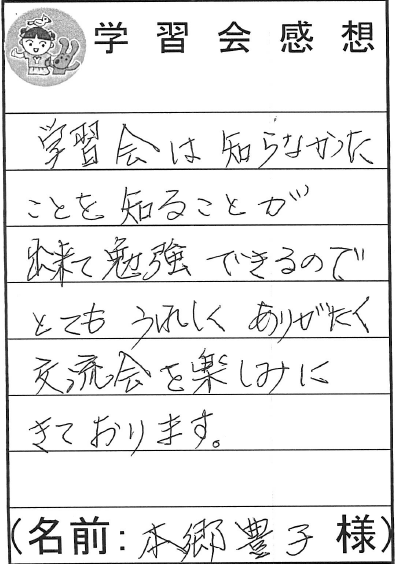 学習会感想
学習会は知らなかった
ことを知ることが
出来て勉強できるので
とてもうれしくありがたく
交流会を楽しみに
きております。
(名前:本郷豊子様)